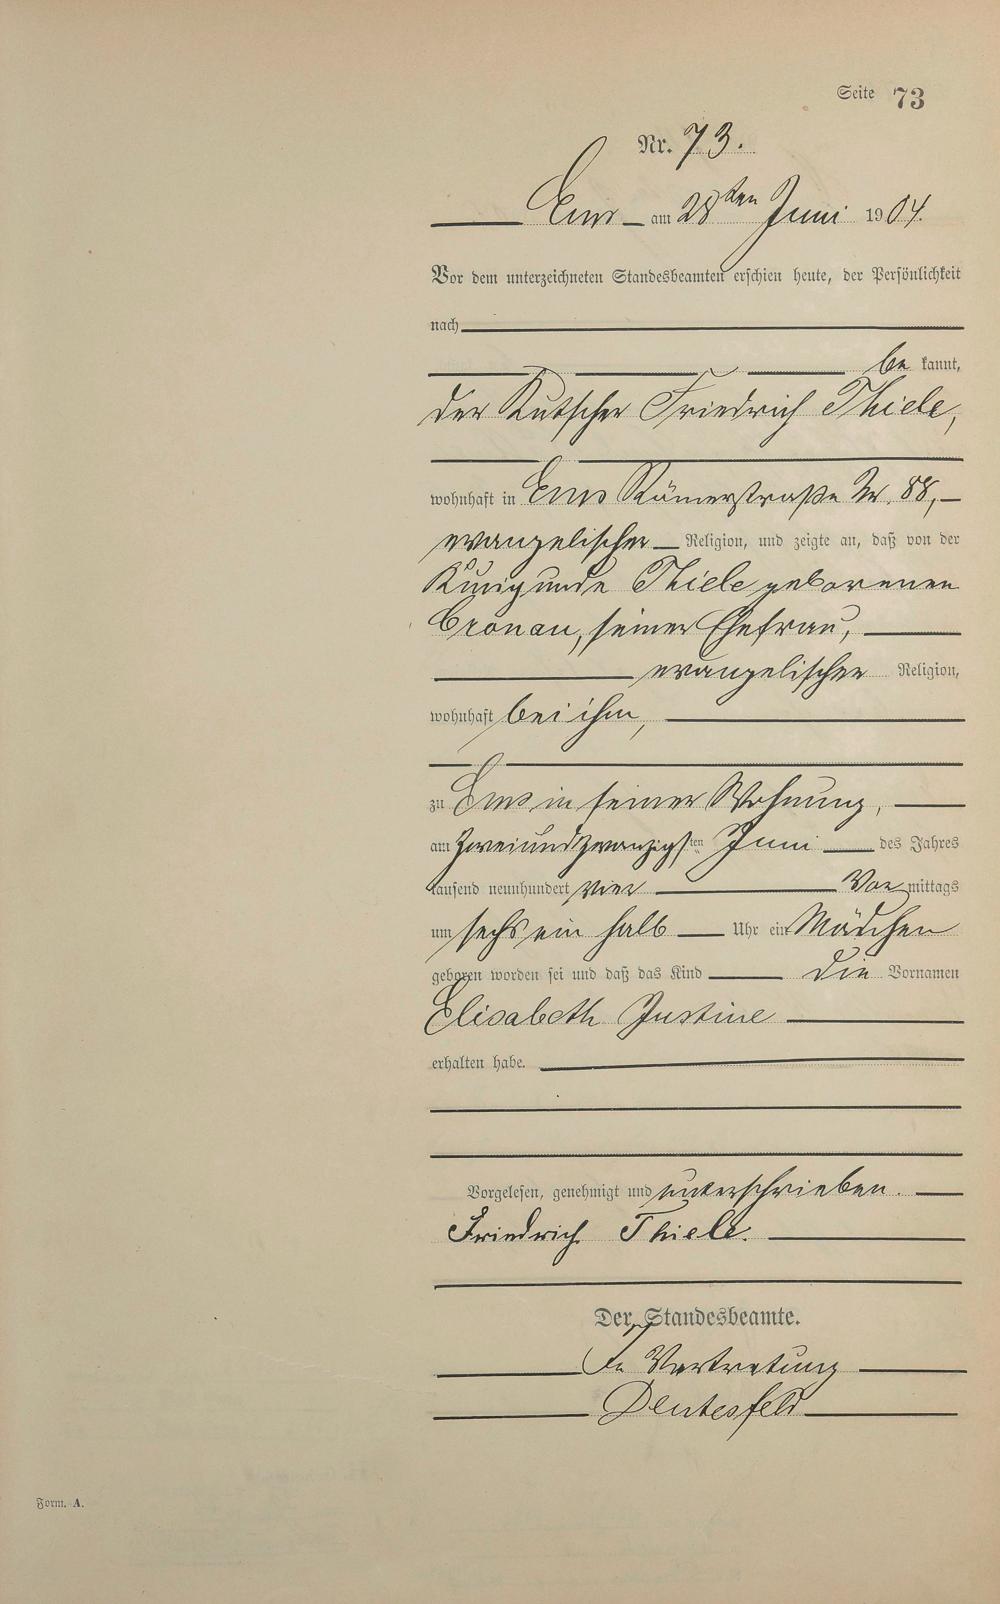 Seite 73
Nr. 73.
Ems am 28ten Juni 1904.
Vor dem unterzeichneten Standesbeamten erschien heute, der Persönlichkeit
nach
be kannt,
der Kutscher Friedrich Thiele,
wohnhaft in Ems Römerstraße Nr. 88,
evangelischer Religion, und zeigte an, daß von der
Kunigunde Thiele geborenen
Cronau, seiner Ehefrau,
evangelischer Religion,
wohnhaft bei ihm,
zu Ems in seiner Wohnung,
am zweiundzwanzigsten Juni des Jahres
tausend neunhundert vier Vor mittags
um sechs ein halb Uhr ein Mädchen
geboren worden sei und daß das Kind die Vornamen
Elisabeth Justine
erhalten habe.
Vorgelesen, genehmigt und unterschrieben.
Friedrich Thiele.
Der Standesbeamte.
In Vertretung
Form. A.